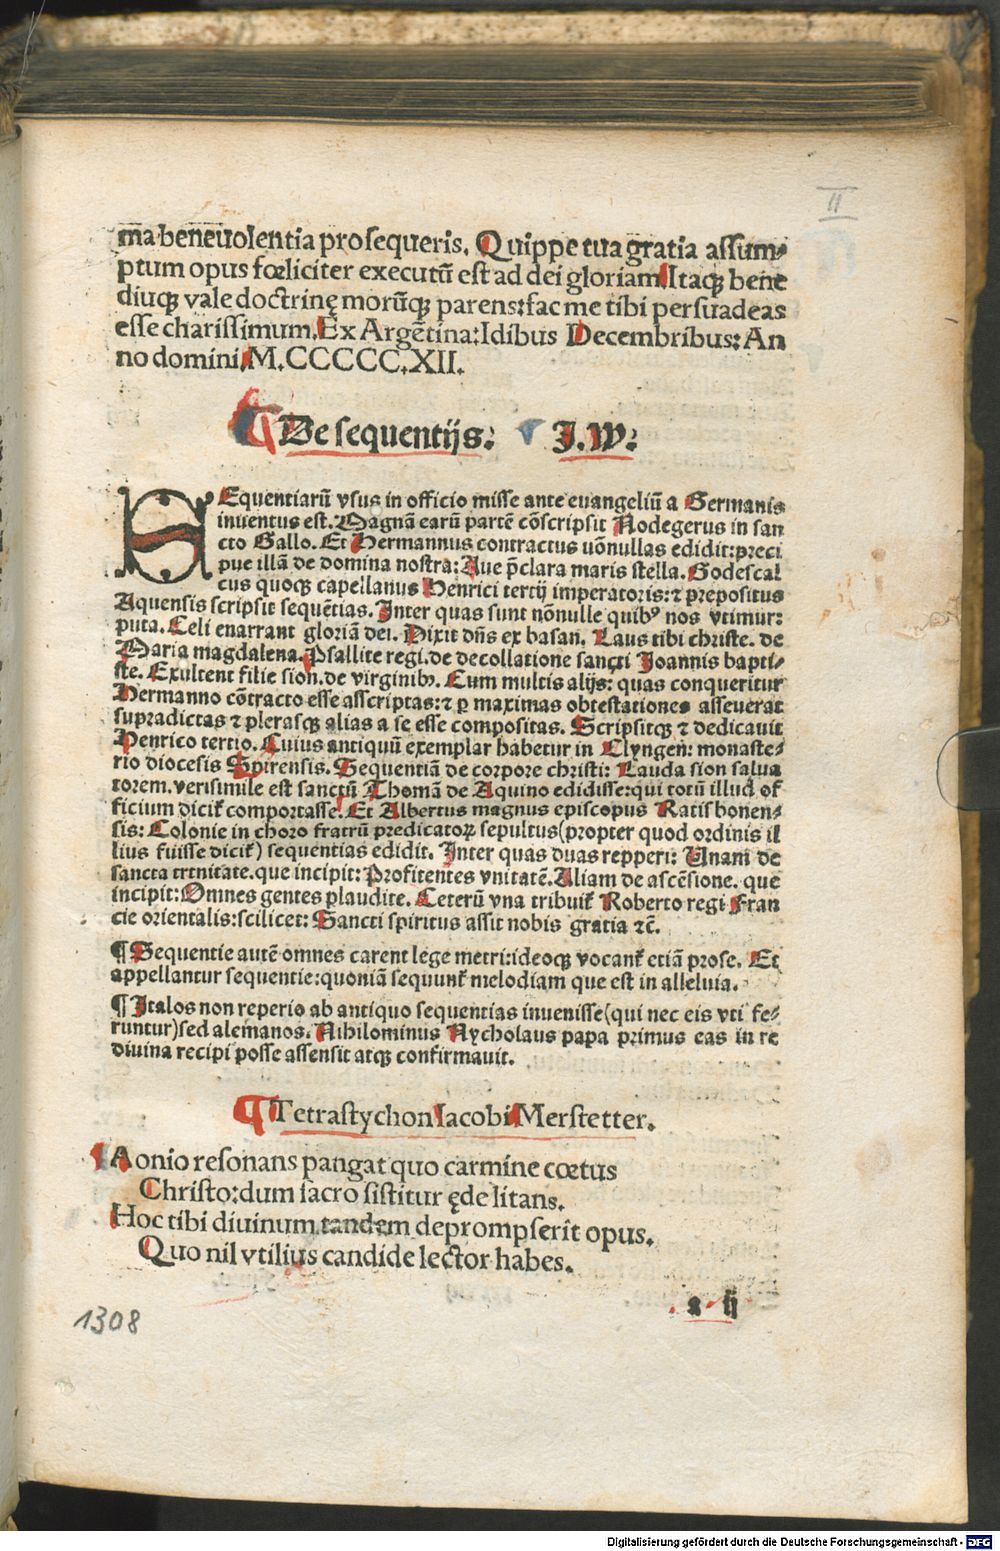 II
ma beneuolentia prosequeris. Quippe tua gratia assum-
ptum opus fœliciter executũ est ad dei gloriam. Itaqꝫ bene
diuqꝫ vale doctrinę morũqꝫ parens: fac me tibi persuadeas
esse charissimum. Ex Argẽtina: Idibus Decembribus: An
no domini. M.CCCCC.XII.
¶ De sequentijs: J.W:
SEquentiarũ vsus in officio misse ante euangeliũ a Germanis
inuentus est. Magnã earũ partẽ cõscripsit Nodegerus in san
cto Gallo. Et Hermannus contractus nõnullas edidit: preci
pue illã de domina nostra: Aue p̃clara maris stella. Godescal
cus quoqꝫ capellanus Henrici tertij imperatoris: ⁊ prepositus
Aquensis scripsit sequẽtias. Inter quas sunt nõnulle quibꝰ nos vtimur:
puta. Celi enarrant gloriã dei. Dixit dñs ex basan. Laus tibi christe. de
Maria magdalena. Psallite regi. de decollatione sancti Joannis bapti-
ste. Exultent filie sion. de virginibꝰ. Cum multis alijs: quas conqueritur
Hermanno cõtracto esse asscriptas: ⁊ ꝑ maximas obtestationes asseuerat
supradictas ⁊ plerasqꝫ alias a se esse compositas. Scripsitqꝫ ⁊ dedicauit
Henrico tertio. Cuius antiquũ exemplar habetur in Clyngen: monaste-
rio diocesis Spirensis. Sequentiã de corpore christi: Lauda sion salua
torem. verisimile est sanctũ Thomã de Aquino edidisse: qui totũ illud of
ficium diciť comportasse. Et Albertus magnus episcopus Ratisbonen-
sis: Colonie in choro fratrũ predicatoꝝ sepultus (propter quod ordinis il
lius fuisse diciť) sequentias edidit. Inter quas duas repperi: Unam de
sancta trtnitate. que incipit: Profitentes vnitatẽ. Aliam de ascẽsione. que
incipit: Omnes gentes plaudite. Ceterũ vna tribuiť Roberto regi Fran
cie orientalis: scilicet: Sancti spiritus assit nobis gratia ⁊c̃.
¶ Sequentie autẽ omnes carent lege metri: ideoqꝫ vocanť etiã prose. Et
appellantur sequentie: quoniã sequunť melodiam que est in alleluia.
¶ Italos non reperio ab antiquo sequentias inuenisse (qui nec eis vti fe-
runtur) sed alemanos. Nihilominus Nycholaus papa primus eas in re
diuina recipi posse assensit atqꝫ confirmauit.
¶ Tetrastychon Iacobi Merstetter.
Aonio resonans pangat quo carmine cœtus
Christo: dum sacro sistitur ęde litans.
Hoc tibi diuinum tandem deprompserit opus.
Quo nil vtilius candide lector habes.
a ij
1308
Digitalisierung gefördert durch die Deutsche Forschungsgemeinschaft - DFG